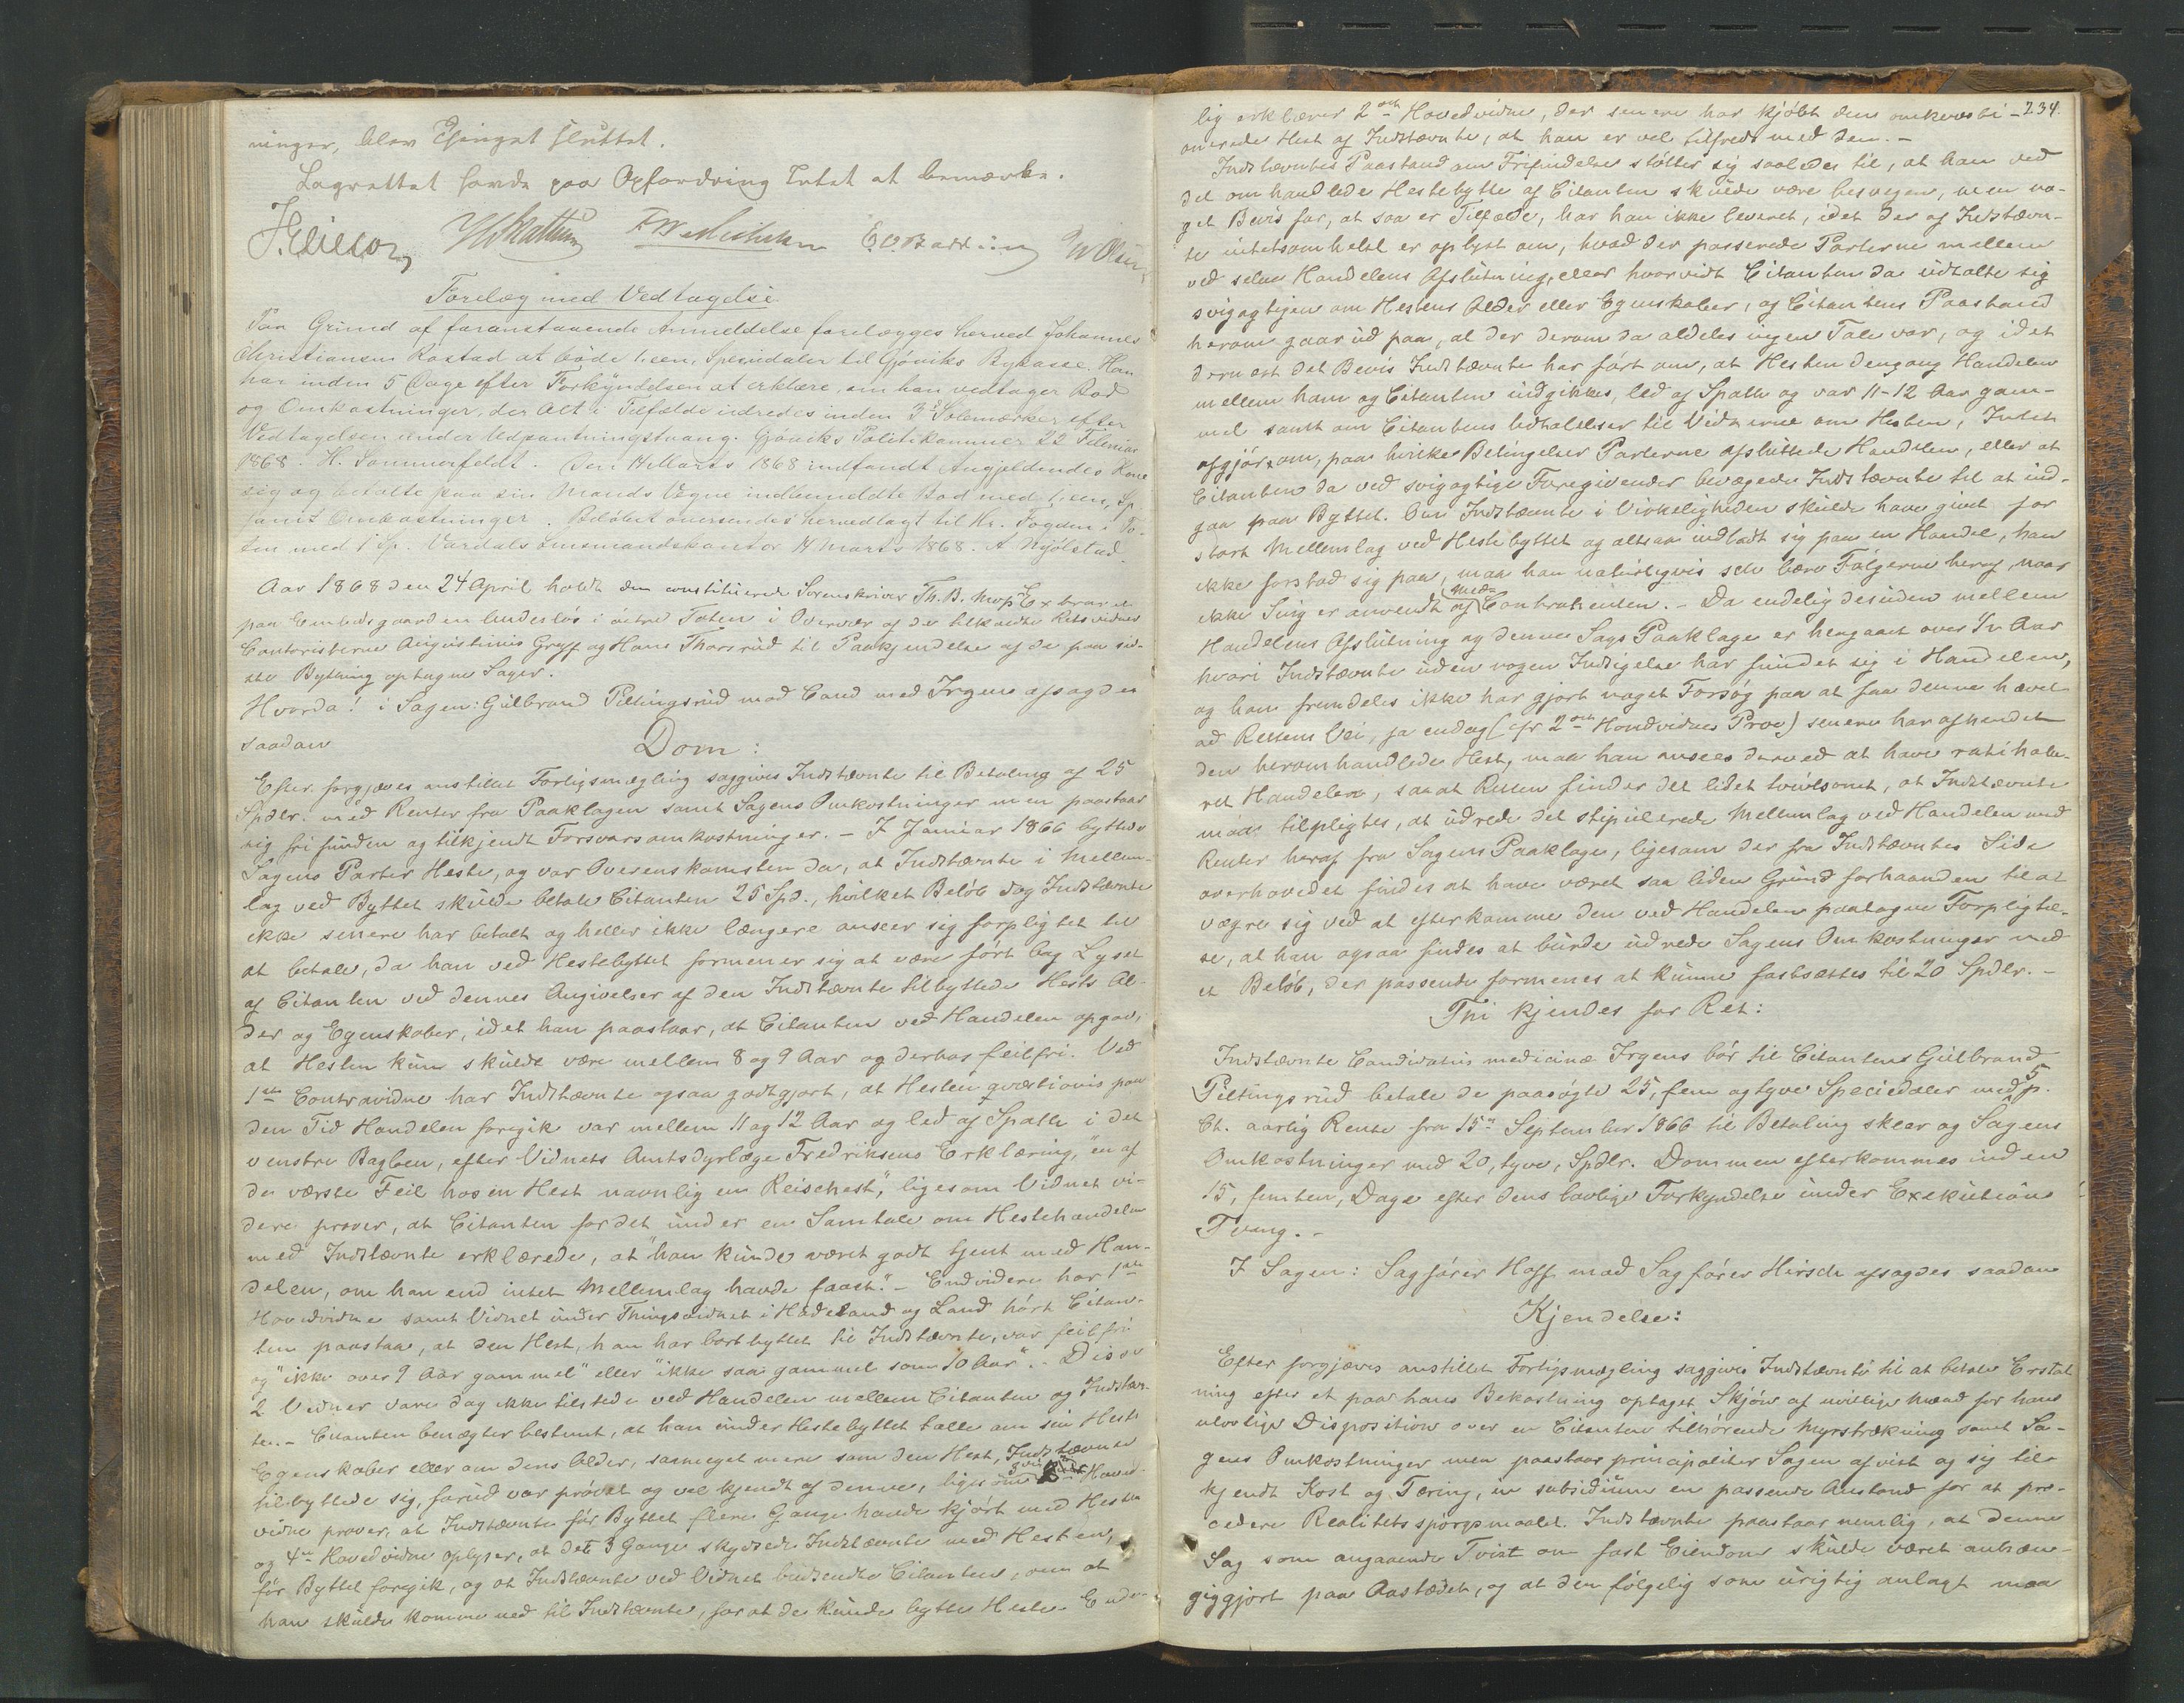 ninger, blev Thinget sluttet.
Lagrettet havde paa Opfordring Intet at bemærke.
Forelæg med Vedtagelse
Paa Grund af foranstaaende Anmeldelse forelægges herved Johannes
Christiansen Rostad at böde 1, een, Speciedaler til Gjöviks Bykasse. Han
har inden 5 Dage efter Forkyndelsen at erklære, om han vedtager Bod
og Omkostninger, der Alt i Tilfælde udredes inden 3de Solemærker efter
Vedtagelsen under Udpantningstvang. Gjöviks Politikammer 22 Februar
1868. H. Sommerfeldt. Den 14 Marts 1868 indfandt Angjeldendes Kone
sig og betalte paa sin Mands Vegne indbemeldte Bod med 1, een, Sp
samt Omkostninger. Belöbet oversendes hervedlagt til Hr. Fogden i To-
ten med 1 Sp. Vardals Lensmandskontor 14 Marts 1868. A. Nyölstad
Aar 1868 den 24 April holdt den constituerede Sorenskriver Th. B. Extraret
paa Embedsgaarden Underlös i östre Toten i Overvær af de tilkaldte Retsvidner
Contoristerne Augustinus Greff og Hans Thorsrud til Paakjendelse af de paa sid-
ste Bything optagne Sager.
Hvorda! i Sagen: Gulbrand Piltingsrud mod Cand med Irgens afsagdes
saadan
Dom:
Efter forgjæves anstillet Forligsmægling saggives Indstævnte til Betaling af 25
Spdlr. med Renter fra Paaklagen samt Sagens Omkostninger men paastaar
sig fri funden og tilkjendt Forsvarsomkostninger. - I Januar 1866 byttede
Sagens Parter Heste, og var Overenskomsten da, at Indstævnte i Mellem-
lag ved Byttet skulde betale Citanten 25 Spd., hvilket Belöb dog Indstævnte
ikke senere har betalt og heller ikke længere anseer sig forpligtet til
at betale, da han ved Hestebyttet formener sig at være fört bag Lyset
af Citanten ved dennes Angivelser af den Indstævnte tilbyttede Hests Al-
der og Egenskaber, idet han paastaar, at Citanten ved Handelen opgav,
at Hesten kun skulde være mellem 8 og 9 Aar og derhos feilfri. Ved
1ste Contravidne har Indstævnte ogsaa godtgjort, at Hesten qvæstionis paa
den Tid Handelen foregik var mellem 11 og 12 Aar og led af Spatte i det
venstre Bagben, efter Vidnets Amtsdyrlæge Fredriksens Erklæring, "en af
de værste Feil hos en Hest navnlig en Reisehest", ligesom Vidnet vi-
dere prover, at Citanten for det under en Samtale om Hestehandelen
med Indstævnte erklærede, at "han kunde været godt tjent med Han-
delen, om han end intet Mellemlag havde faaet." - Endvidere har 1ste
Hovedvidne samt Vidnet under Thingsvidnet i Hadeland og Land hört Citan-
ten paastaa, at den Hest, han har bortbyttet til Indstævnte, var feilfri
og "ikke over 9 Aar gammel" eller "ikke saa gammel som 10 Aar". - Disse
2 Vidner vare dog ikke tilstede ved Handelen mellem Citanten og Indstævn-
te. - Citanten benægter bestemt, at han under Hestebyttet talte om sin Hests
Egenskaber eller om dens Alder, saameget mere som den Hest, Indstævnte
tilbyttede sig, forud var prövet og vel kjendt af denne, ligesom 3die Hoved-
vidne prover, at Indstævnte för Byttet flere Gange havde kjört med Hesten
og 4de Hovedvidne oplyser, at det 3 Gange skydsede Indstævnte med Hesten,
för Byttet foregik, og at Indstævnte ved Vidnet budsendte Citanten, om at
han skulde komme ned til Indstævnte, for at de kunde bytte Heste. Ende-
234.
lig erklærer 2det Hovedvidne, der senere har kjöbt den omkvesti-
onerede Hest af Indstævnte, at han er vel tilfreds med den. -
Indstævntes Paastand om Frifindelse stötter sig saaledes til, at han ved
det omhandlede Hestebytte af Citanten skulde være besvegen, men no-
get Bevis for, at saa er Tilfælde, har han ikke leveret, idet der af Indstævn-
te intetsomhelst er oplyst om, hvad der passerede Parterne mellem
ved selve Handelens Afslutning, eller hvorvidt Citanten da udtalte sig
svigagtigen om Hestens Alder eller Egenskaber, og Citantens Paastand
herom gaar ud paa, at der derom da aldeles ingen Tale var, og idet
dernæst det Bevis Indstævnte har fört om, at Hesten dengang Handelen
mellem ham og Citanten indgikkes, led af Spatte og var 11-12 Aar gam-
mel samt om Citantens Udtalelser til Vidnerne om Hesten, Intet
afgjör om, paa hvilke Betingelser Parterne afsluttede Handelen, eller at
Citanten da ved svigagtige Foregivender bevægede Indstævnte til at ind-
gaa paa Byttet. Om Indstævnte i Virkeligheden skulde have givet for
stort Mellemlag ved Hestebyttet og altsaa indladt sig paa en Handel, han
ikke forstod sig paa, maa han naturligvis selv bære Fölgerne heraf, naar
ikke Svig er anvendt af Medcontrahenten. - Da endelig desuden mellem
Handelens Afslutning og denne Sags Paaklage er hengaaet over ½ Aar
hvori Indstævnte uden nogen Indsigelse har fundet sig i Handelen,
og han fremdeles ikke har gjort noget Forsög paa at faa denne hævet
ad Rettens Vei, ja endog (cfr 2det Hovedvidnes Prov) senere har afhændet
den heromhandlede Hest, maa han ansees derved at have ratihabe-
ret Handelen, saa at Retten finder det lidet tvivlsomt, at Indstævnte
maa tilpligtes, at udrede det stipulerede Mellemlag ved Handelen med
Renter heraf fra Sagens Paaklage, ligesom der fra Indstævntes Side
overhovedet findes at have været saa liden Grund forhaanden til at
vægre sig ved at efterkomme den ved Handelen paatagne Forpligtel-
se, at han ogsaa findes at burde udrede Sagens Omkostninger med
et Belöb, der passende formenes at kunne fastsættes til 20 Spdlr. -
Thi kjendes for Ret:
Indstævnte Candidatus medicinæ Irgens bör til Citanten Gulbrand
Piltingsrud betale de paasögte 25, fem og tyve Speciedaler med 5 p.
Ct. aarlig Rente fra 15de September 1866 til Betaling skeer og Sagens
Omkostninger med 20, tyve, Spdlr. Dommen efterkommes inden
15, femten, Dage efter dens lovlige Forkyndelse under Exekutions
Tvang. -
I Sagen: Sagförer Hoff mod Sagförer Hirsch afsagdes saadan
Kjendelse:
Efter forgjæves anstillet Forligsmægling saggives Indstævnte til at betale Erstat
ning efter et paa hans Bekostning optaget Skjön af uvillige Mænd for hans
ulovlige Disposition over en Citanten tilhörende Myrstrækning samt Sa-
gens Omkostninger men paastaar principaliter Sagen afvist og sig til-
kjendt Kost og Tæring, in subsidium en passende Anstand for at pro-
cedere Realitetsspörgsmaalet. Indstævnte paastaar nemlig, at denne
Sag som angaaende Tvist om fast Eiendom skulde været anhæn-
giggjort paa Aastedet, og at den fölgelig som urigtig anlagt maa